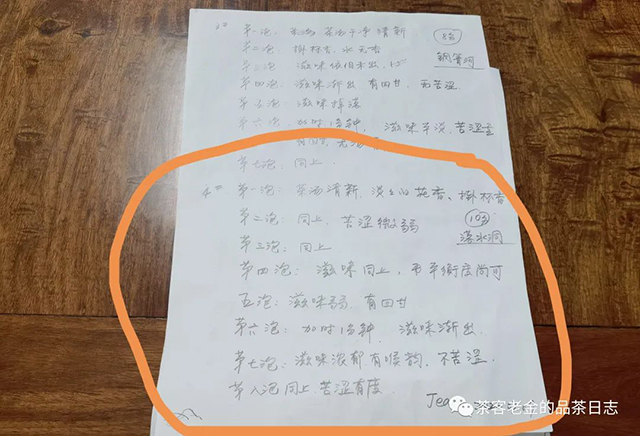 3# 第一泡: 茶汤 茶汤干净 清新
第二泡: 挂杯香, 水无香
88
铜箐河
第三泡: 滋味依旧未出
第四泡: 滋味渐出 有回甘, 无苦涩
第五泡: 滋味
第六泡: 加时15秒, 滋味平淡, 苦涩显
第七泡: 同上.
4# 第一泡: 茶汤清新, 淡 花香、挂杯香
第二泡: 同上, 苦涩微弱
108
滴水洞
第三泡: 同上
第四泡: 滋味同上, 平衡度尚可
五泡: 滋味弱, 有回甘
第六泡: 加时15秒, 滋味渐出.
第七泡: 滋味浓郁有喉韵, 不苦涩.
第八泡同上, 苦涩有度.
Jea
茶客老金的品茶日志